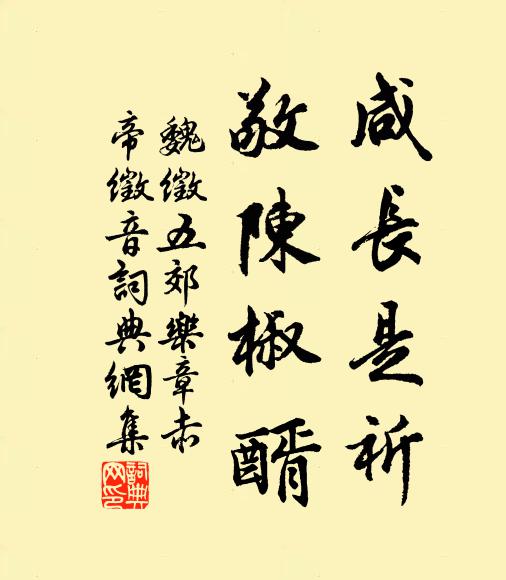 咸長是祈
敬陳椒醑
魏徵五郊樂章赤
帝徵音詞典網集
詞典网印